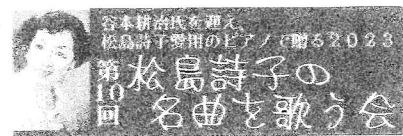 谷本耕治氏を迎え、
松島詩子愛用のピアノで贈る2023
第10回
松島詩子の
名曲を歌う会